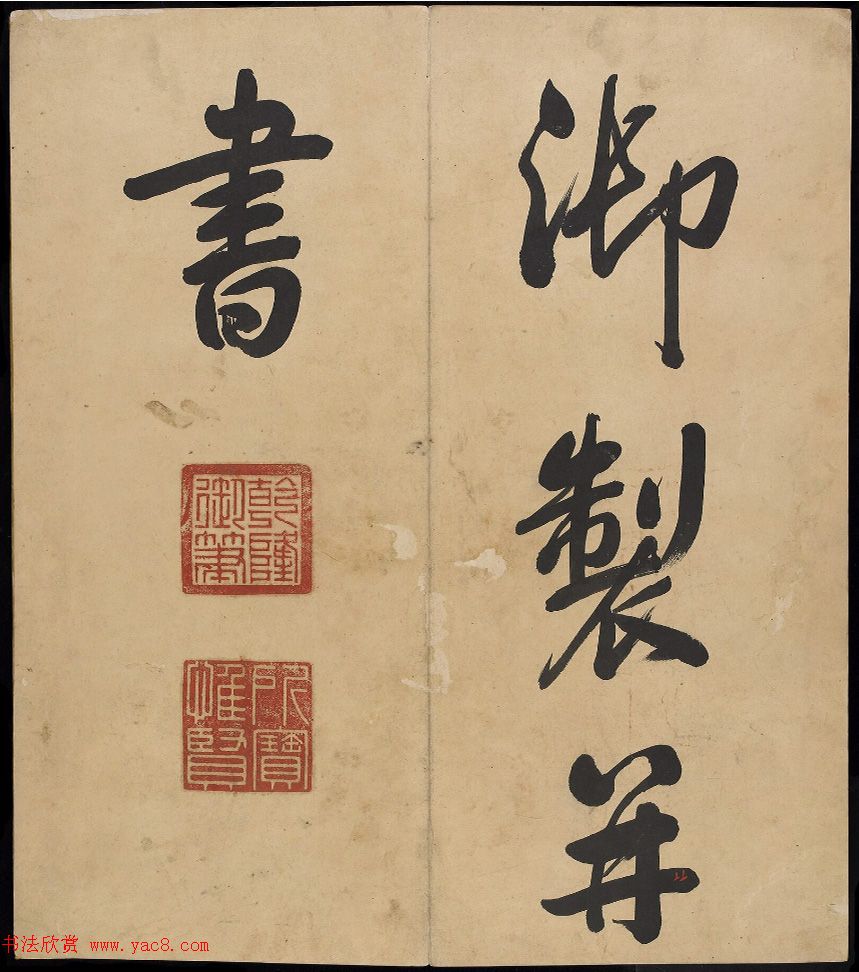 御製并
書
乾隆御筆
所寶惟賢
书法欣赏 www.yac8.com